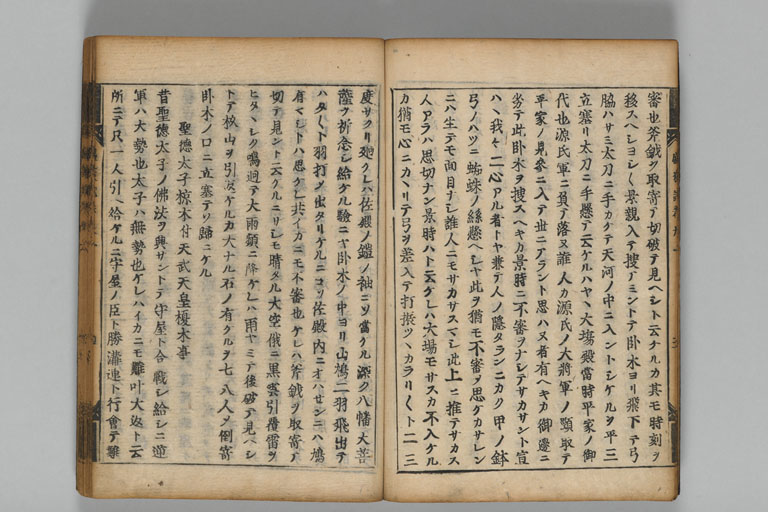 審也斧鉞ヲ取寄テ切破テ見ヘシト云ケルカ其モ時刻ヲ
移スヘシヨシ〱景親入テ捜テミントテ卧木ヨリ飛下テ弓
脇ハサミ太刀ニ手カケテ天河ノ中ニ入ントシケルヲ平三
立塞リ太刀ニ手懸テ云ケルハヤヽ大場殿當時平家ノ御
代也源氏軍ニ負テ落ヌ誰人カ源氏ノ大將軍ノ頸取テ
平家ノ見參ニ入テ世ニアラント思ハヌ者有ヘキカ御邊ニ
劣テ此卧木ヲ捜スヘキカ景時ニ不審ヲナシテサカサント宣
ハヽ我々二心アル者トヤ兼テ人ノ隱タランニカク甲ノ鉢
弓ノハツニ蜘蛛ノ絲懸ヘシヤ此ヲ猶モ不審ノ思ケカサレン
ニハ生テモ面目ナシ誰人ニモサカサスマシ此上ニ推テサカス
人アラハ思切ナン景時ハト云ケレハ大場モサスカ不入ケル
カ猶モ心ニカヽリテ弓ヲ差入テ打振ツヽカラリ〱ト二三
度サクリ廻ケレハ佐殿ノ鎧ノ袖ニソ當ケル深ク八幡大菩
薩ヲ祈念シ給ケル驗ニヤ卧木ノ中ヨリ山鳩二羽飛出テ
ハタ〱ト羽打テ出タリケルニコソ佐殿内ニオハセンニハ鳩
有マシトハ思ケレ共イカニモ不審也ケレハ斧鉞ヲ取寄テ
切テ見ント云ケルニサシモ晴タル大空俄ニ黒雲引覆雷ヲ
ヒタヽシク鳴廻テ大雨頻ニ降ケレハ雨ヤミテ後破テ見ヘシ
トテ杉山ヲ引返ケルカ大ナル石ノ有ケルヲ七八人〆倒寄
卧木ノ口ニ立塞テソ歸ニケル
聖德太子椋木付天武天皇榎木事
昔聖德太子ノ佛法ヲ興サントテ守屋ト合戰シ給シニ逆
軍ハ大勢也太子ハ無勢也ケレハイカニモ難叶大返ト云
所ニテ只一人引ヘ給ケルニ守屋ノ臣ト勝溝連ト行會テ難